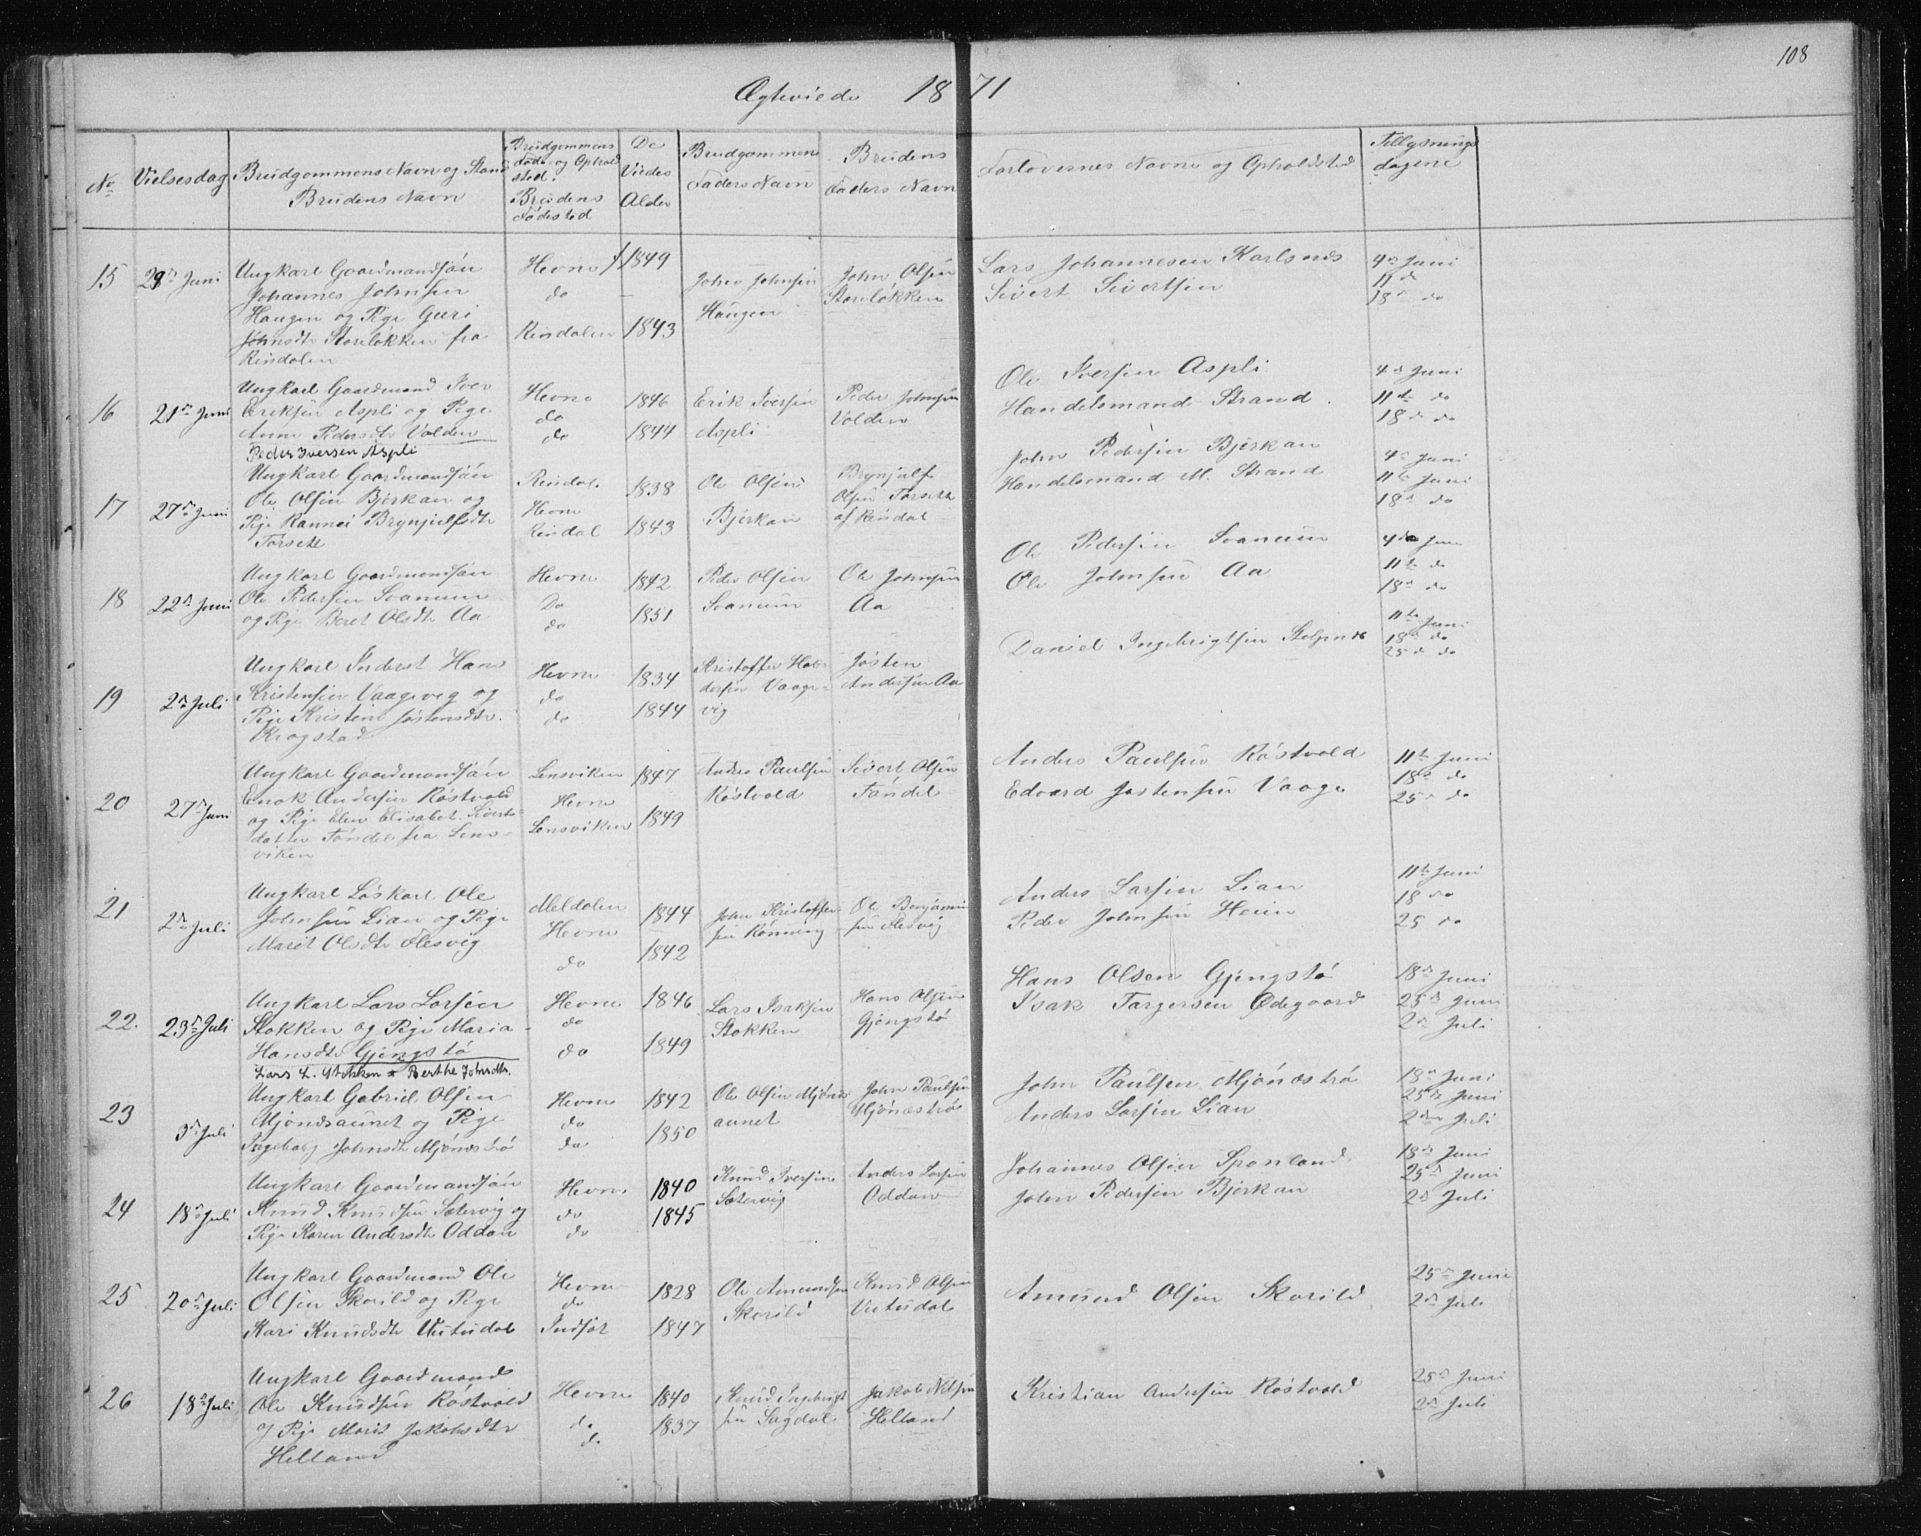 108
Ægteviede 1871
No
Vielsesdag
Brudgommens Navn og Stand
Brudens Navn
Brudgommens
Føde- og Ophold
sted.
Brudens
Fødested
De
Viedes
Alder
Brudgommens
Faders Navn
Brudens
Faders Navn
Forlovernes Navne og Opholdsted
Tillysnings
dagene
15
Juni
Ungkarl Gaardmandsøn
Johannes Johnsen
Haugen og Pige Guri
Johnsdtr Storeløkken fra
Rindalen
Hevne
do
Rindalen
1849
1843
John Johnsen
Haugen
John Olsen
Storeløkken
Lars Johannesen
Sivert Sivertsen
4de Juni
11 do
18 do
16
21de Juni
Ungkarl Gaardmand Iver
Eriksen Aspli og Pige
Anne Pedersdtr Volden
Peder Iversen Aspli
Hevne
do
do
1846
1844
Erik Iversen
Aspli
Peder Johnsen
Volden
Ole Iversen Aspli
Handelsmand Strand
4de Juni
11te do
18de do
17
27de Juni
Ungkarl Gaardmandsøn
Ole Olsen Bjerkan og
Pige Rannei Brynjulfsdtr
Torsete
Rindal
Hevne
Rindal
1838
1843
Ole Olsen
Bjerkan
Brynjulf
Olsen Torsete
af Rindal
John Pedersen Bjerkan
Handelsmand M. Strand
4de Juni
11te Juni
18de do
18
22de Juni
Ungkarl Gaardmandsøn
Ole Pedersen Svanum
og Pige Beret Olsdtr Aa
Hevne
Do
do
1842
1851
Peder Olsen
Svanum
Ole Johnsen
Aa
Ole Pedersen Svanum
Ole Johnsen Aa
4de Juni
11te do
18de do
19
2de Juli
Ungkarl Inderst Hans
Kristensen Vaageveg og
Pige Kristine Jøstensdtr
Krogstad
Hevne
do
do
1834
1844
Vaage-
vig
Jøsten
Andersen Aa
Daniel Ingebrigtsen
11te Juni
18de do
25de do
20
27de Juni
Ungkarl Gaardmandsøn
Enok Andersen Røstvold
og Pige Elen Elisabet Siverts-
datter Tøndel fra Lens-
viken
Lensviken
Hevne
Lensviken
1847
1849
Anders Paulsen
Røstvold
Sivert Olsen
Tøndel
Anders Paulsen Røstvold
Edvard Jøstensen Vaage
11te Juni
18de do
25de do
21
2de Juli
Ungkarl Løskarl Ole
Johnsen Lian og Pige
Marit Olsdtr Flesvig
Meldalen
Hevne
do
1844
1842
John Kristoffer-
sen Rønning
Ole Benjamin
sen Flesvig
Anders Larsen Lian
Peder Johnsen Heim
11te Juni
18 do
25 do
22.
23de Juli
Ungkarl Lars Larsen
Stokken og Pige Maria
Hansdtr Gjengstø
Lars L. Stokken * Berthe Johnsdtr.
Hevne
do
do
1846
1849
Lars Isaksen
Stokken
Hans Olsen
Gjengstø
Hans Olsen Gjengstø
Isak Torgersen Ødegaard
18de Juni
25de Juni
2de Juli
23
3de Juli
Ungkarl Gabriel Olsen
Mjønesaunet og Pige
Ingeborg Johnsdtr Mjønestrø
Hevne
do
do
1842
1850
Ole Olsen Mjønes
aunet
John Paulsen
Mjønestrø
John Paulsen Mjønestrø
Anders Larsen Lian
18de Juni
25de Juni
2den Juli
24
18de Juli
Ungkarl Gaardmandsøn
Knud Knudsen Sætervig og
Pige Karen Andersdtr Oddan
Hevne
do
do
1840
1845
Knud Iversen
Sætervig
Anders Larsen
Oddan
Johannes Olsen
John Pedersen Bjerkan
18de Juni
25de Juni
2de Juli
25
20de Juli
Ungkarl Gaardmand Ole
Olsen Skorild og Pige
Kari Knudsdtr
Hevne
do
Indset
1828
1847
Ole Amundsen
Skorild
Knud Olsen
Amund Olsen Skorild
25de Juni
2de Juli
26
18de Juli
Ungkarl Gaardmand
Ole Knudsen Røstvold
og Pige Marit Jakobsdtr
Helland
Hevne
do
do
1840
1837
Knud Ingebrigt
sen Sagdal
Jakob Nilsen
Helland
Kristian Andersen Røstvold
25de Juni
2de Juli